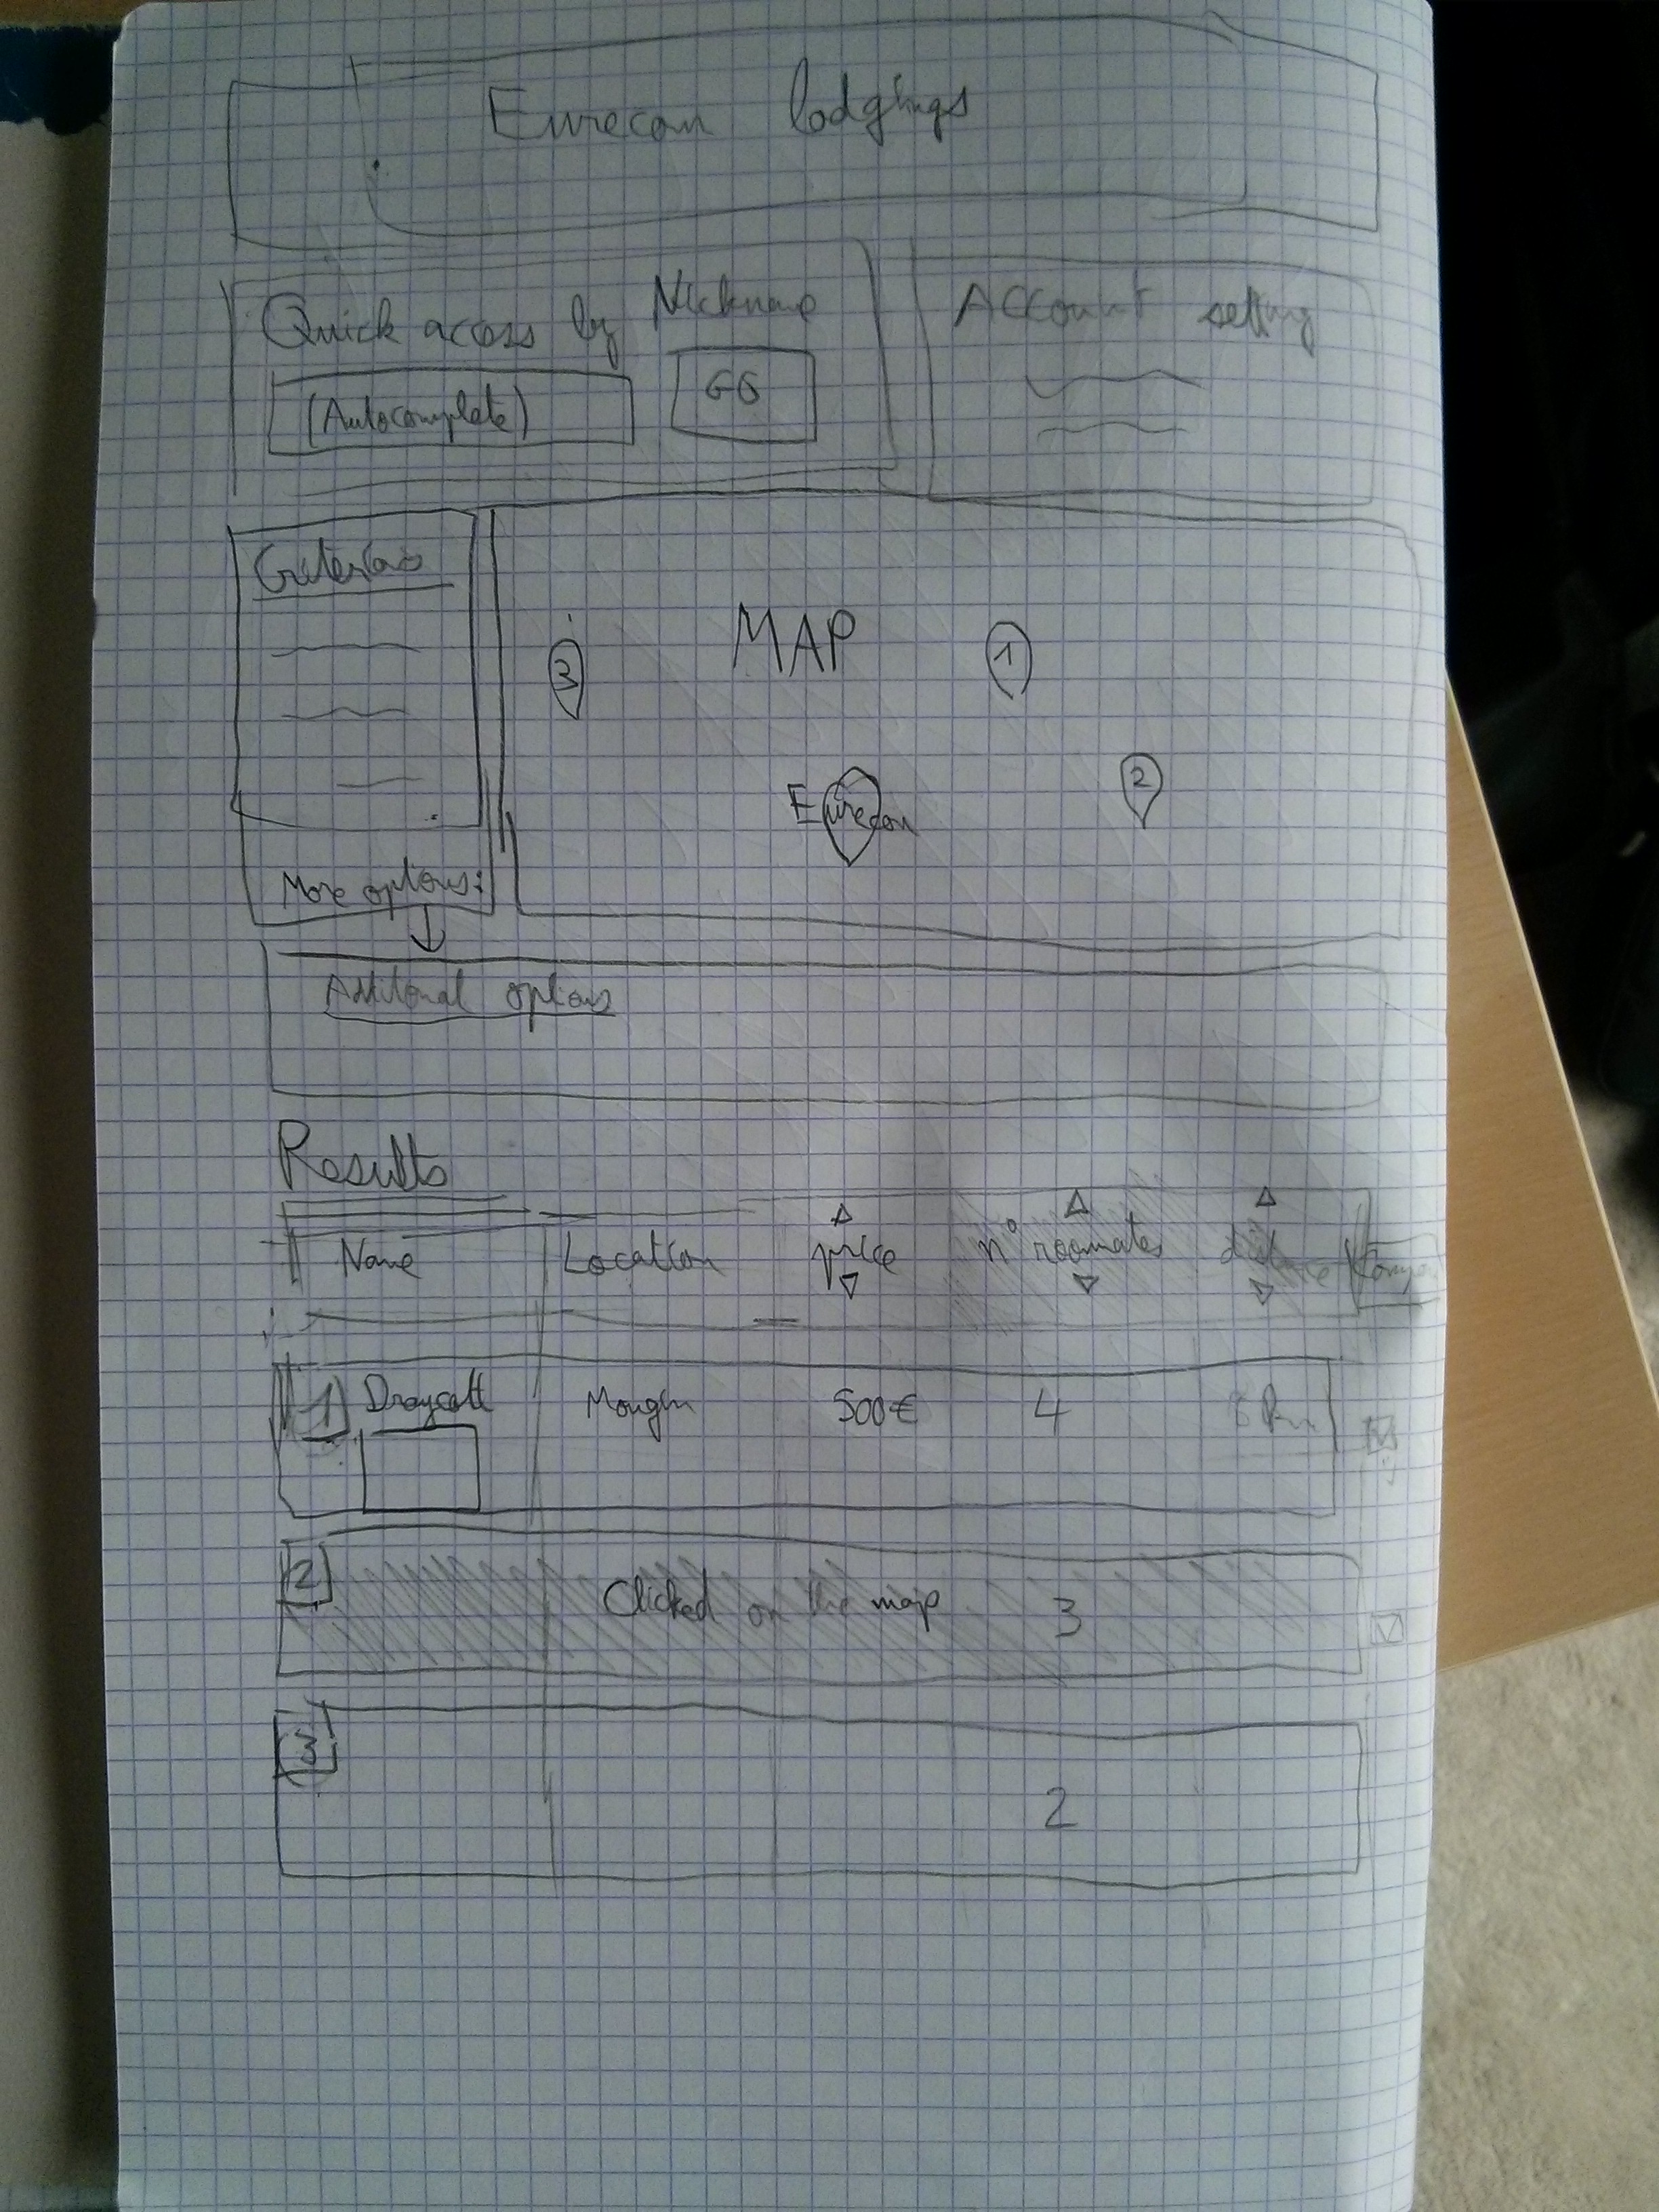 Eurecom lodgings
Quick access by Nickname
(Autocomplete) GO
Account setting
Criterias
MAP
3
1
2
Eurecom
More options:
Additional options
Results
Name Location price n° roomates distance
1 Draycott Mougin 500€ 4
2 Clicked on the map 3
3 2